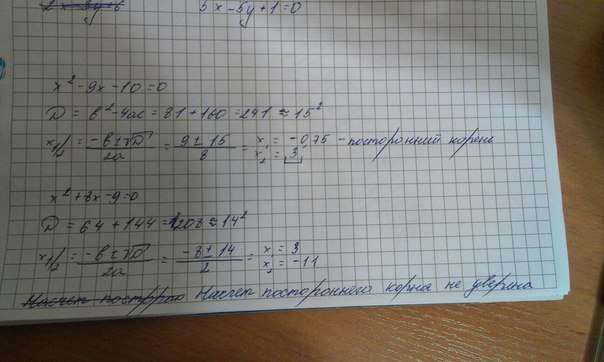 5x-5y+1=0
x²-9x-10=0
D = b²-4ac = 81+160 = 241 ≈ 15²
x1/2 = -b±√D / 2a = 9±15 / 8 = x₁ = -0,75 - посторонний корень x₂ = 3
x²+8x-9=0
D = 64+144 = 208 ≈ 14²
x1/2 = -b±√D / 2a = -8±14 / 2 = x₁ = 3 x₂ = -11
Насчет постороннего корня не уверена